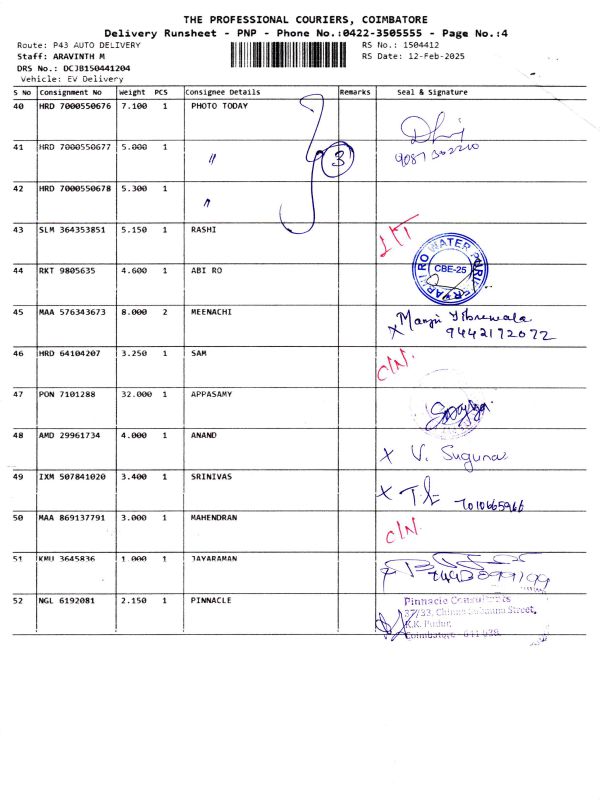 THE PROFESSIONAL COURIERS, COIMBATORE
Delivery Runsheet - PNP - Phone No.:0422-3505555 - Page No.:4
Route: P43 AUTO DELIVERY RS No.: 1504412
Staff: ARAVINTH M RS Date: 12-Feb-2025
DRS No.: DCJB150441204
Vehicle: EV Delivery
S No Consignment No Weight PCS Consignee Details Remarks Seal & Signature
40 HRD 7000550676 7.100 1 PHOTO TODAY
41 HRD 7000550677 5.000 1 〃 3 9087302210
42 HRD 7000550678 5.300 1 〃
43 SLM 364353851 5.150 1 RASHI
44 RKT 9805635 4.600 1 ABI RO WATER CBE-25
45 MAA 576343673 8.000 2 MEENACHI x Manju Tibrewala
9442172072
46 HRD 64104207 3.250 1 SAM C/N.
47 PON 7101288 32.000 1 APPASAMY
48 AMD 29961734 4.000 1 ANAND x V. Suguna
49 IXM 507841020 3.400 1 SRINIVAS x 7010665966
50 MAA 869137791 3.000 1 MAHENDRAN C/N.
51 KMU 3645836 1.000 1 JAYARAMAN
52 NGL 6192081 2.150 1 PINNACLE Pinnacle Consultants
37/33, Chinna Street,
K.K. Pudur,
Coimbatore - 641 038.